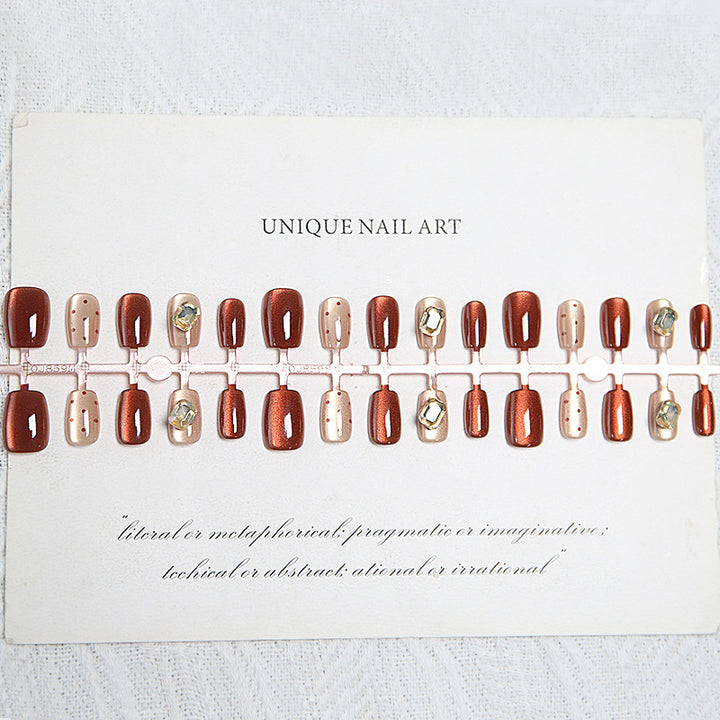 UNIQUE NAIL ART
OJ8594
"literal or metaphorical; pragmatic or imaginative;
tcchical or abstract; ational or irrational"